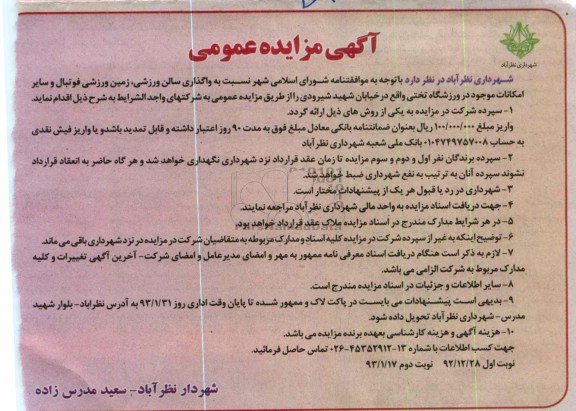 آگهی مزایده عمومی
شهرداری نظرآباد
شهرداری نظرآباد در نظر دارد باتوجه به موافقتنامه شورای اسلامی شهر نسبت به واگذاری سالن ورزشی، زمین ورزشی فوتبال و سایر
امکانات موجود در ورزشگاه تختی واقع در خیابان شهید شیرودی را از طریق مزایده عمومی به شرکتهای واجد الشرایط به شرح ذیل اقدام نماید.
۱- سپرده شرکت در مزایده به یکی از روش های ذیل ارائه گردد.
واریز مبلغ ۱۰۰/۰۰۰/۰۰۰ ریال بعنوان ضمانتنامه بانکی معادل مبلغ فوق به مدت ۹۰ روز اعتبار داشته و قابل تمدید باشد و یا واریز فیش نقدی
به حساب ۰۱۰۴۷۴۹۷۵۷۰۰۸ بانک ملی شعبه شهرداری نظرآباد
۲- سپرده برندگان نفر اول و دوم و سوم مزایده تا زمان عقد قرارداد نزد شهرداری نگهداری خواهد شد و هر گاه حاضر به انعقاد قرارداد
نشوند سپرده آنان به ترتیب به نفع شهرداری ضبط خواهد شد.
۳- شهرداری در رد یا قبول هر یک از پیشنهادات مختار است.
۴- جهت دریافت اسناد مزایده به واحد مالی شهرداری نظرآباد مراجعه نمایند.
۵- در هر شرایط مدارک مندرج در اسناد مزایده ملاک عقد قرارداد خواهد بود.
۶- توضیح اینکه به غیر از سپرده شرکت در مزایده کلیه اسناد و مدارک مربوطه به متقاضیان شرکت در مزایده در نزد شهرداری باقی می ماند.
۷- لازم به ذکر است هنگام دریافت اسناد معرفی نامه ممهور به مهر و امضای مدیرعامل و امضای شرکت- آخرین آگهی تغییرات و کلیه
مدارک مربوط به شرکت الزامی می باشد.
۸- سایر اطلاعات و جزئیات در اسناد مزایده مندرج است.
۹- بدیهی است پیشنهادات می بایست در پاکت لاک و ممهور شده تا پایان وقت اداری روز ۹۳/۱/۳۱ به آدرس نظرآباد- بلوار شهید
مدرس- شهرداری نظرآباد تحویل داده شود.
۱۰- هزینه آگهی و هزینه کارشناسی بعهده برنده مزایده می باشد.
جهت کسب اطلاعات با شماره ۱۳-۴۵۳۵۲۹۱۲-۰۲۶ تماس حاصل فرمائید.
نوبت اول ۹۲/۱۲/۲۸ نوبت دوم ۹۳/۱/۱۷
شهردار نظرآباد- سعید مدرس زاده